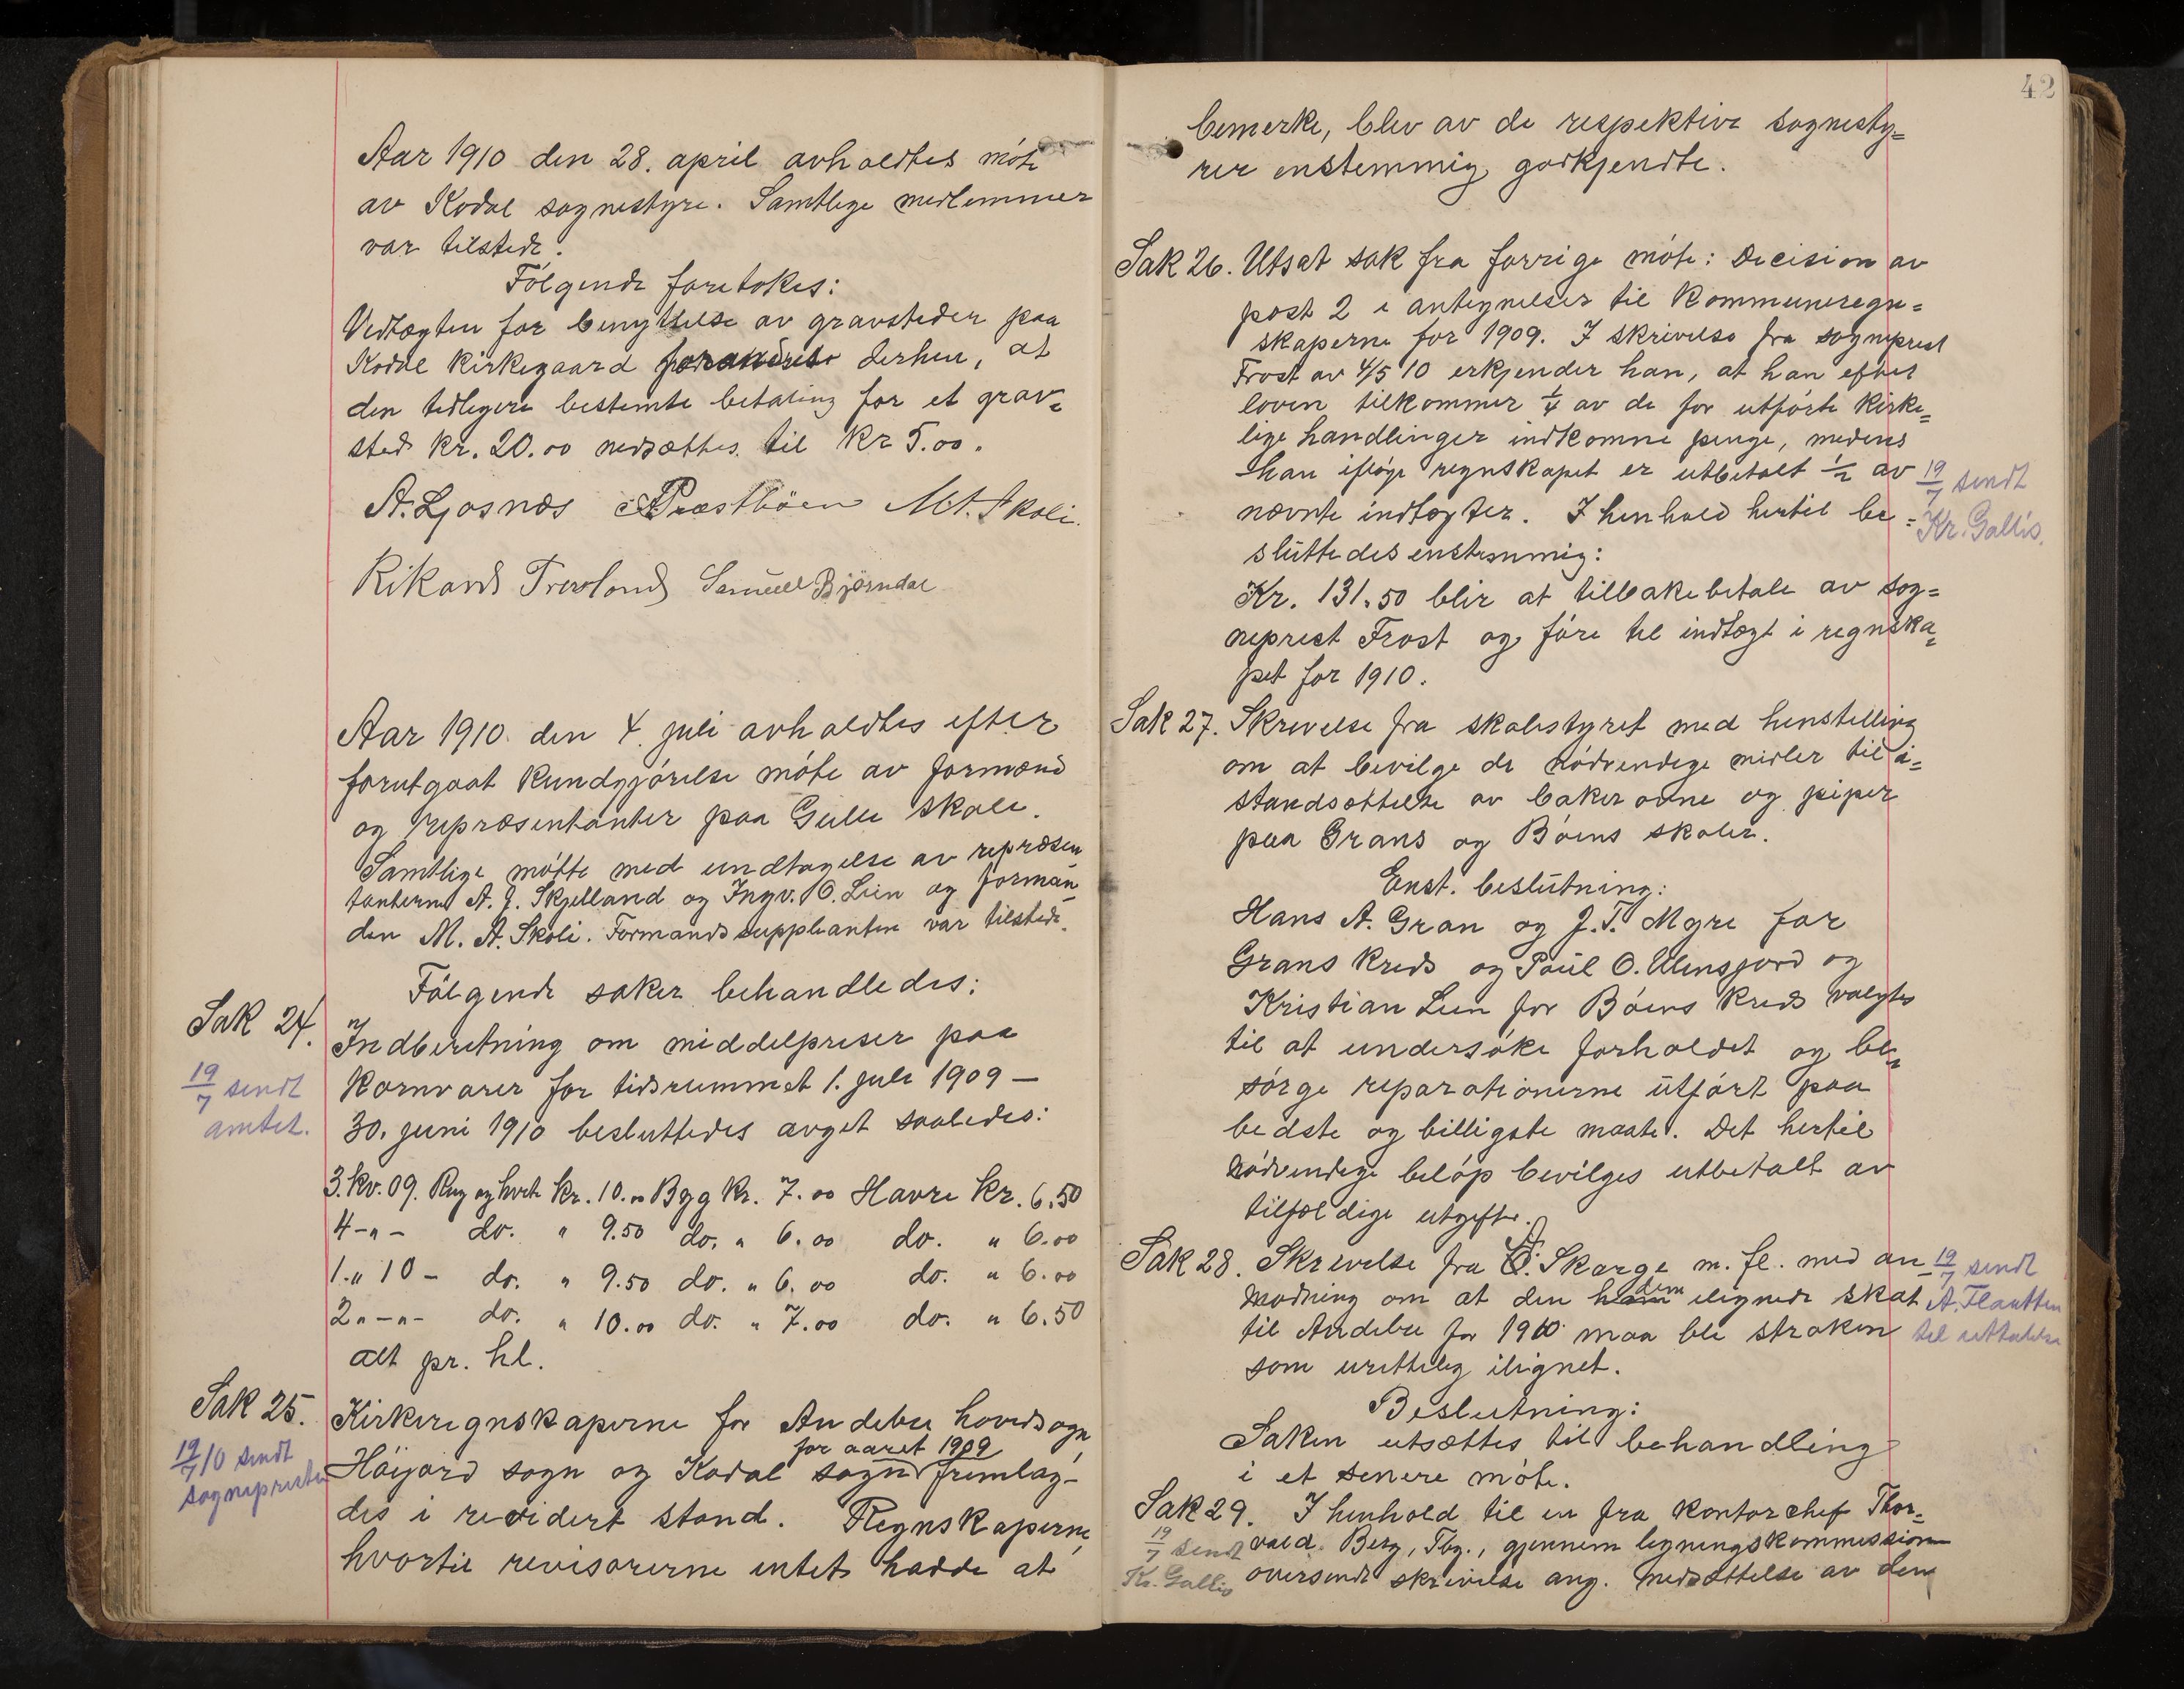 Aar 1910 den 28. april avholdtes möte
av Kodal sognestyre. Samtlige medlemmer
var tilstede.
Fölgende foretokes:
Vedtægten for benyttelse av gravsteder paa
Kodal kirkegaard forandres derhen, at
den tidligere bestemte betaling for et grav=
sted kr. 20.00 nedsættes til kr 5.00.
A. Ljosnæs Præstböen M.A. Skoli.
Rikard Trevland Samuel Björndal
Aar 1910 den 4. juli avholdtes efter
forutgaat kundgjörelse möte av formænd
og repræsentanter paa Gulli skole.
Samtlige mötte med undtagelse av repræsen
tanterne A. J. Skjelland og Ingv. O. Lien og forman
den M. A. Skoli. Formandssuppleanten var tilstede.
Fölgende saker behandledes:
Sak 24.
Indberetning om middelpriser paa
kornvarer for tidsrummet 1. juli 1909 —
30. juni 1910 besluttedes avget saaledes:
19/7 sendt
amtet.
3. kv. 09. Rug og hvete kr. 10.00 Byg kr. 7.00 Havre kr. 6.50
4 - " - do. " 9.50 do. " 6.00 do. " 6.00
1. " 10 - do. " 9.50 do. " 6.00 do. " 6.00
2 " - " - do. " 10.00 do. " 7.00 do. " 6.50
alt pr. hl.
Sak 25.
Kirkeregnskaperne for Andebu hovedsogn,
for aaret 1909
Höijord sogn og Kodal sogn fremlag-
des i revidert stand. Regnskaperne,
hvortil revisorerne intet hadde at
19/7 10 sendt
sognepresten
42
bemerke, blev av de respektive sognesty=
rer enstemmig godkjendte.
Sak 26. Utsat sak fra forrige möte: Decision av
post 2 i antegnelser til kommuneregn=
skaperne for 1909. I skrivelse fra sogneprest
Frost av 4/5 10 erkjender han, at han efter
loven tilkommer 1/4 av de for utförte kirke=
lige handlinger indkomne penge, medens
han iflg. regnskapet er utbetalt 1/2 av
nævnte indtægter. I henhold hertil be=
sluttedes enstemmig:
19/7 sendt
Kr. Gallis.
Kr. 131.50 blir at tilbakebetale av sog=
neprest Frost og före til indtægt i regnska=
pet for 1910.
Sak 27. Skrivelse fra skolestyret med henstilling
om at bevilge de nödvendige midler til i=
standsættelse av bakerovne og piper
paa Grans og Böens skoler.
Enst. beslutning:
Hans A. Gran og J. T. Myre for
Grans kreds og Paul O. Ulensjord og
Kristian Lien for Böens kreds valgtes
til at undersöke forholdet og be=
sörge reparationerne utfört paa
bedste og billigste maate. Det hertil
nödvendige belöp bevilges utbetalt av
tilfældige utgifter.
Sak 28. Skrivelse fra O. Skorge m. fl. med an-
modning om at den dem ilignede skat
til Andebu for 1910 maa bli stroken
som urettelig ilignet.
19/7 sendt
A. Flaatten
til uttalelse
Beslutning:
Saken utsættes til behandling
i et senere möte.
Sak 29. I henhold til en fra kontorchef Thor=
vald Berg, Tbg., gjennem ligningskommission
oversendt skrivelse ang. nedsættelse av den
19/7 sendt
Kr. Gallis